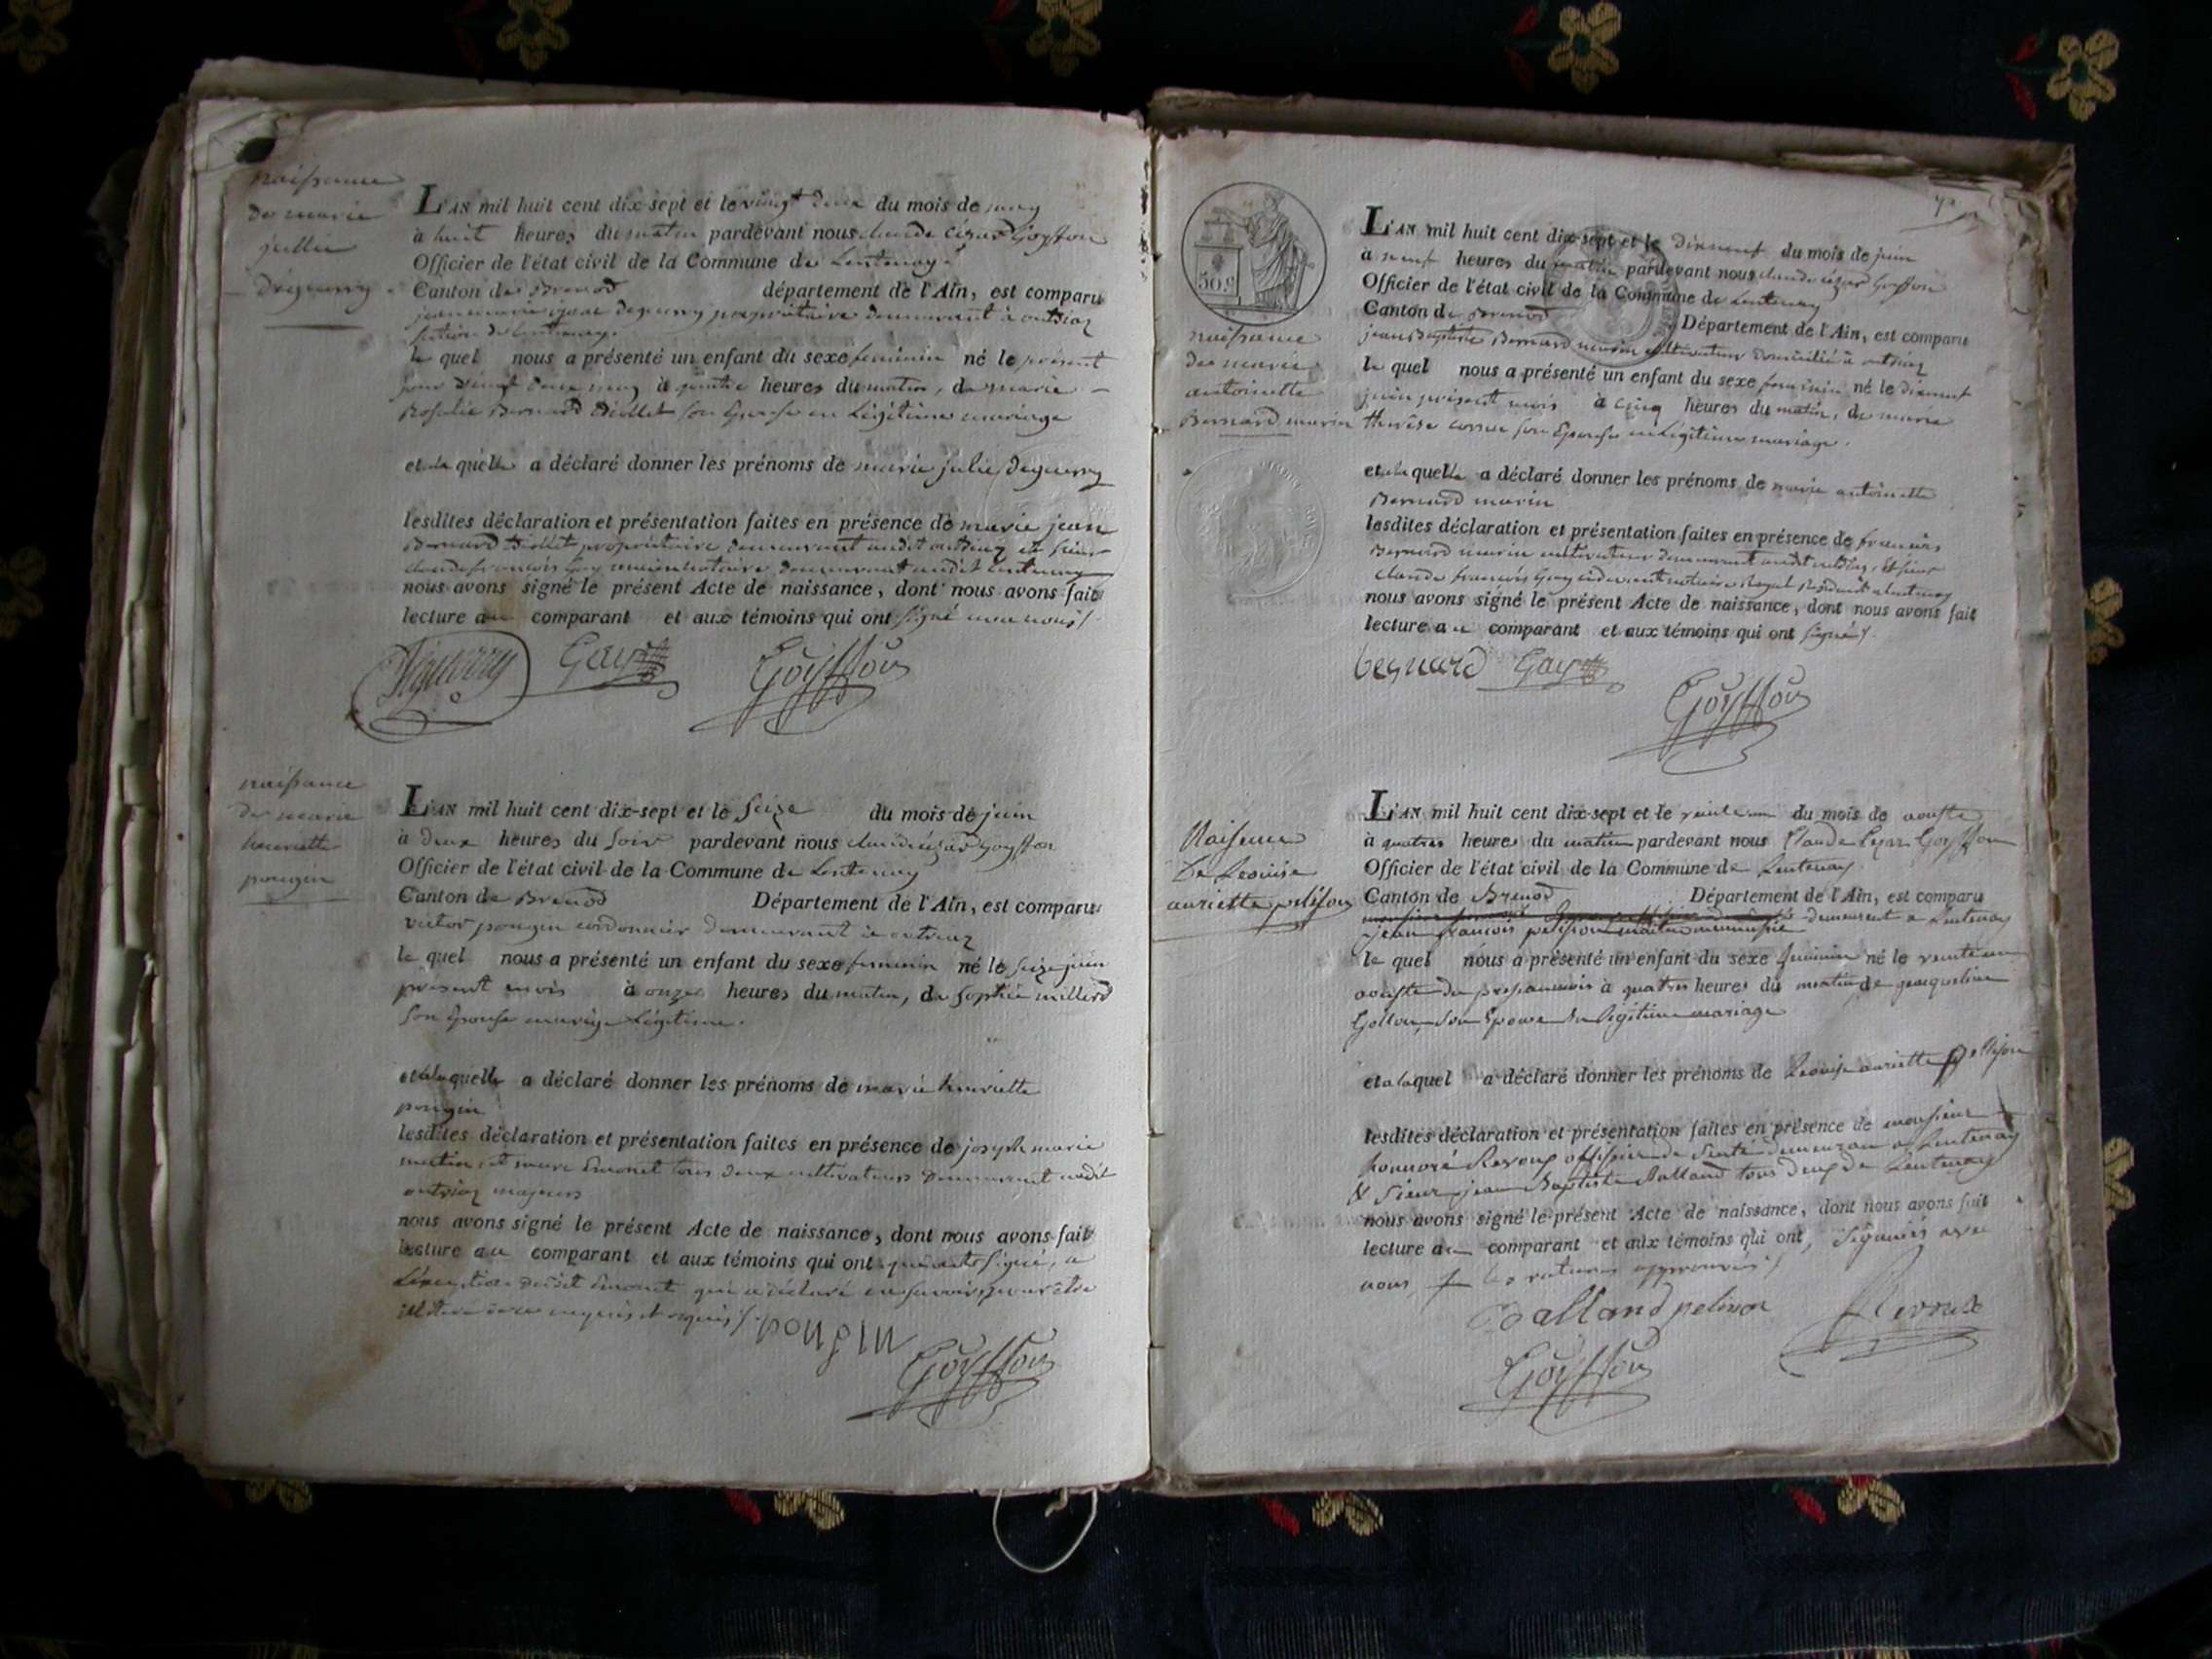 naissance
de marie
jullie
deguerry
L'AN mil huit cent dix-sept et le vingt deux du mois de may
à huit heures du matin pardevant nous claude césar Goyffon
Officier de l'état civil de la Commune de Lentenay
Canton de Brenod département de l'Ain, est comparu
jean marie deguerry propriétaire demeurant à outriaz
section de Lentenay
le quel nous a présenté un enfant du sexe feminin né le présent
jour vingt deux may à quatre heures du matin, de marie
Rosalie Bernard son Epouse en Légitime mariage
et à la quelle a déclaré donner les prénoms de marie julie deguerry
lesdites déclaration et présentation faites en présence de marie jean
Bernard propriétaire demeurant audit outriaz et sieur
claude françois Gay notaire demeurant audit Lentenay
nous avons signé le présent Acte de naissance, dont nous avons fait
lecture au comparant et aux témoins qui ont signé avec nous
Deguerry Gay Goyffon
naissance
de marie
henriette
pougin
L'AN mil huit cent dix-sept et le seize du mois de juin
à deux heures du soir pardevant nous claude césar Goyffon
Officier de l'état civil de la Commune de Lentenay
Canton de Brenod Département de l'Ain, est comparu
victor pougin cordonnier demeurant à outriaz
le quel nous a présenté un enfant du sexe feminin né le seize juin
présent mois à onze heures du matin, de sophie millerd
son Epouse mariage Légitime.
et à laquelle a déclaré donner les prénoms de marie henriette
pougin
lesdites déclaration et présentation faites en présence de joseph marie
martin, et marc Emonet tous deux cultivateurs demeurant audit
outriaz majeurs
nous avons signé le présent Acte de naissance, dont nous avons fait
lecture au comparant et aux témoins qui ont signé, a
L'exception dudit Emonet qui a déclaré ne savoir, pour être
illitéré de ce enquis et requis
pougin
Goyffon
50 c
naissance
de marie
antoinette
Bernard marin
L'AN mil huit cent dix-sept et le dixneuf du mois de juin
à neuf heures du matin pardevant nous claude césar Goyffon
Officier de l'état civil de la Commune de Lentenay
Canton de Brenod Département de l'Ain, est comparu
jean Baptiste Bernard marin cultivateur domicilié à outriaz
le quel nous a présenté un enfant du sexe feminin né le dixneuf
juin présent mois à cinq heures du matin, de marie
therèse son Epouse en Légitime mariage.
et à la quelle a déclaré donner les prénoms de marie antoinette
Bernard marin
lesdites déclaration et présentation faites en présence de francois
Bernard marin cultivateur demeurant audit outriaz, et sieur
claude françois Gay notaire Royal Résident a Lentenay
nous avons signé le présent Acte de naissance, dont nous avons fait
lecture au comparant et aux témoins qui ont signés
begnard Gay
Goyffon
Naisence
De Leouise
auriette pelison
L'AN mil huit cent dix-sept et le du mois de aouste
à quatres heures du matin pardevant nous Claude Cezar Goyffon
Officier de l'état civil de la Commune de Lentenay
Canton de Brenod Département de l'Ain, est comparu
demeurent a Lentenay
jean francois
le quel nous a présenté un enfant du sexe feminin né le
aouste du à quatres heures du matin de
Gollion son Epouse en légitime mariage
et a laquel a déclaré donner les prénoms de Leouise auriette pellison
lesdites déclaration et présentation faites en présence de monsieur
honnoré Revoux officier de Santé demeuran a Lentenay
& Sieur jean Baptiste Balland tous deux de Lentenay
nous avons signé le présent Acte de naissance, dont nous avons fait
lecture au comparant et aux témoins qui ont, signiés avec
nous les ratures approuvées
Balland pelison Revoux
Goyffon